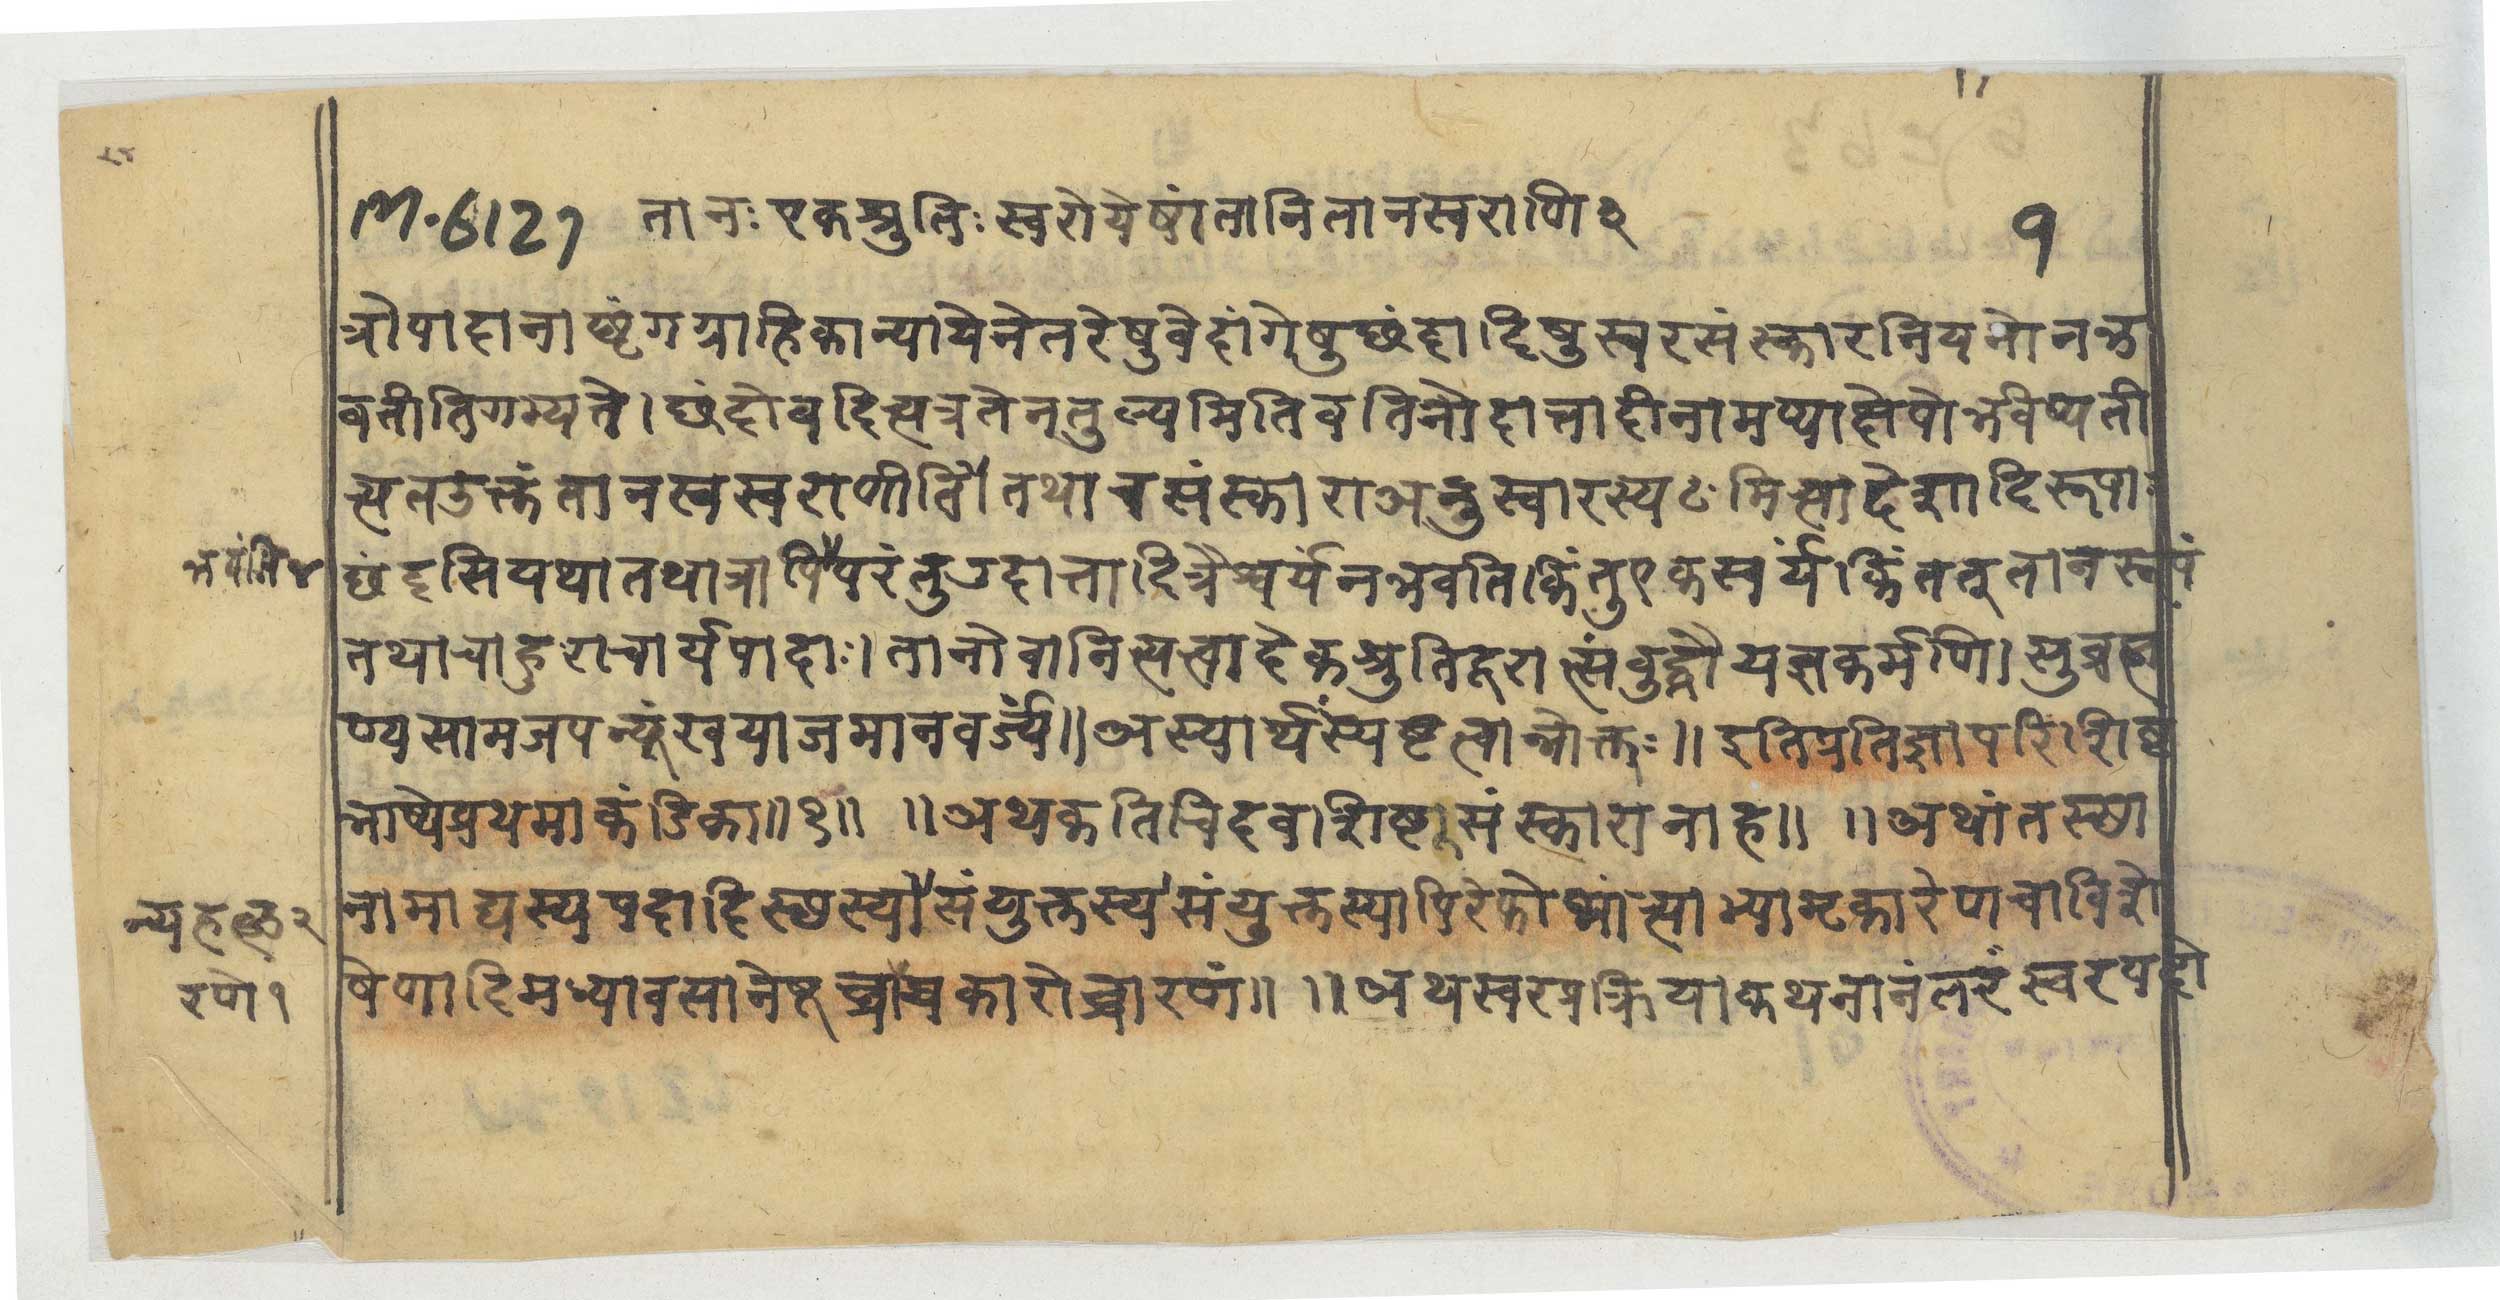 M. 6127 तानः एकश्रुतिः स्वरो येषां तानि तानस्वराणि २
१
त्रोपादानाछृंगग्राहिकान्यायेनेतरेषुवेदांगेषुछंदादिषुस्वरसंस्कारनियमोनन्त
वतीतिगम्यते। छंदोवदित्यत्रतेनतुल्यमितिवतिनोदात्तादीनामप्याक्षेपोभविष्यती
त्यतउक्तंतानस्वस्वराणीति। तथाचसंस्काराअनुस्वारस्यꣳमित्यादेशादिरूपाः
छंदसियथातथात्रापिपरंतुउदात्तादित्रैश्वर्यंनभवतिकिंतुएकस्वर्यं।किंतत्तानरूपं
भवंति ४
तथाचाहुराचार्यपादाः। तानोवानित्यत्वादेकश्रुतिदूरात्संबुद्धौयज्ञकर्मणि। सुब्रह्म
ण्यसामजपन्यूंखयाजमानवर्ज्यं॥ अस्यार्थःस्पष्टत्वान्नोक्तः॥ इतिप्रतिज्ञापरिशिष्ट
भाष्येप्रथमाकंडिका॥१॥ ॥अथकतिचिदवशिष्टसंस्कारानाह॥ ॥अथांतस्छा
नामाद्यस्यपदादिस्छस्यासंयुक्तस्यसंयुक्तस्यापिरेफोष्मांत्याभ्यामृकारेणचाविशे
न्यहल् २
षेणादिमध्यावसानेषूच्चार्यकारोच्चारणं॥ ॥अथस्वरप्रक्रियाकथनानंतरंस्वरपदो
रणे १